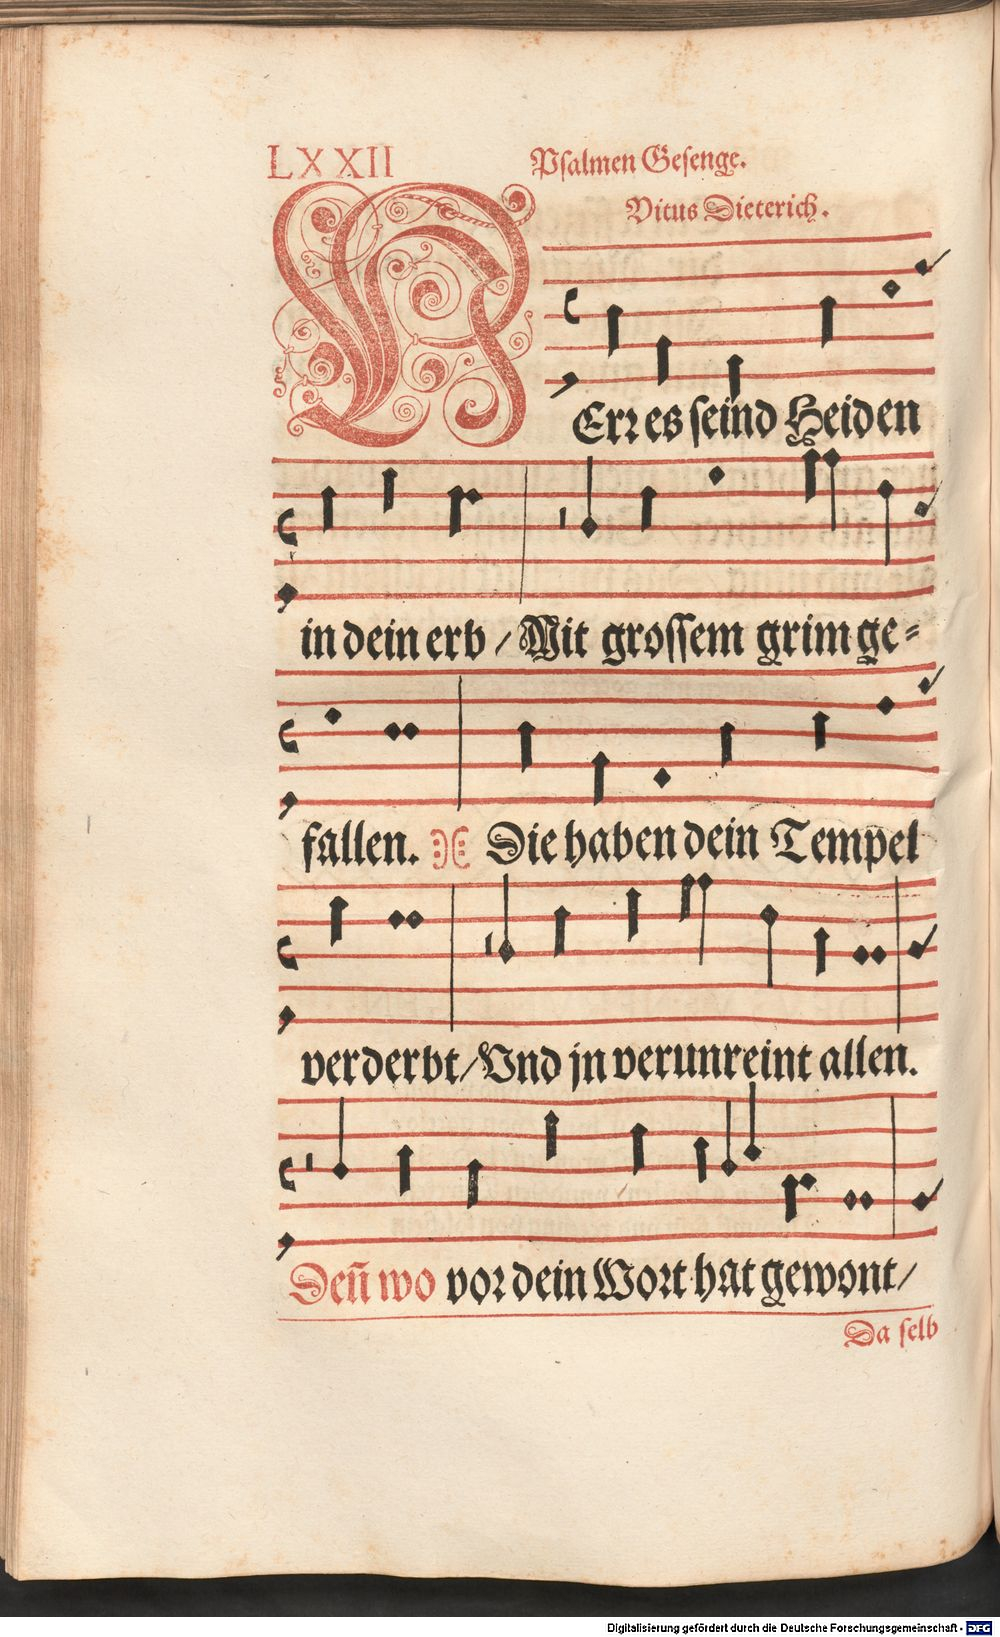 LXXII
Psalmen Gesenge.
Vitus Dieterich.
HErr es seind Heiden
in dein erb / Mit grossem grim ge-
fallen. Die haben dein Tempel
verderbt / Vnd jn verunreint allen.
Deñ wo vor dein Wort hat gewont /
Da selb
Digitalisierung gefördert durch die Deutsche Forschungsgemeinschaft - DFG